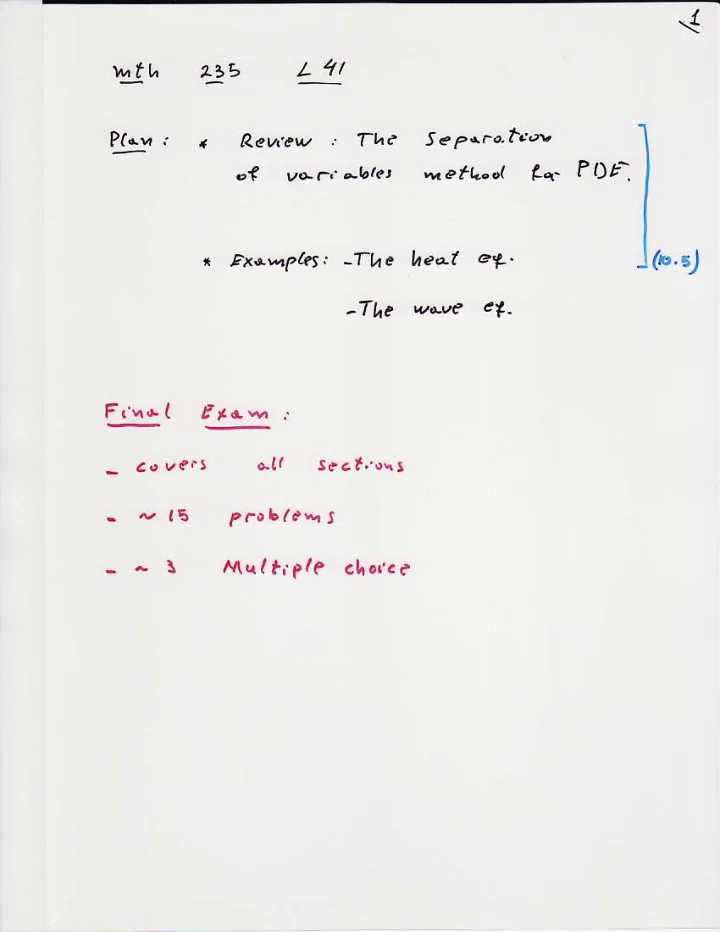 1
mth 235 L 41
Plan: * Review: The Separation
of variables method for PDE.
* Examples: - The heat eq.
(10.5)
- The wave eq.
Final Exam:
- covers all sections
- ~ 15 problems
- ~ 3 Multiple choice